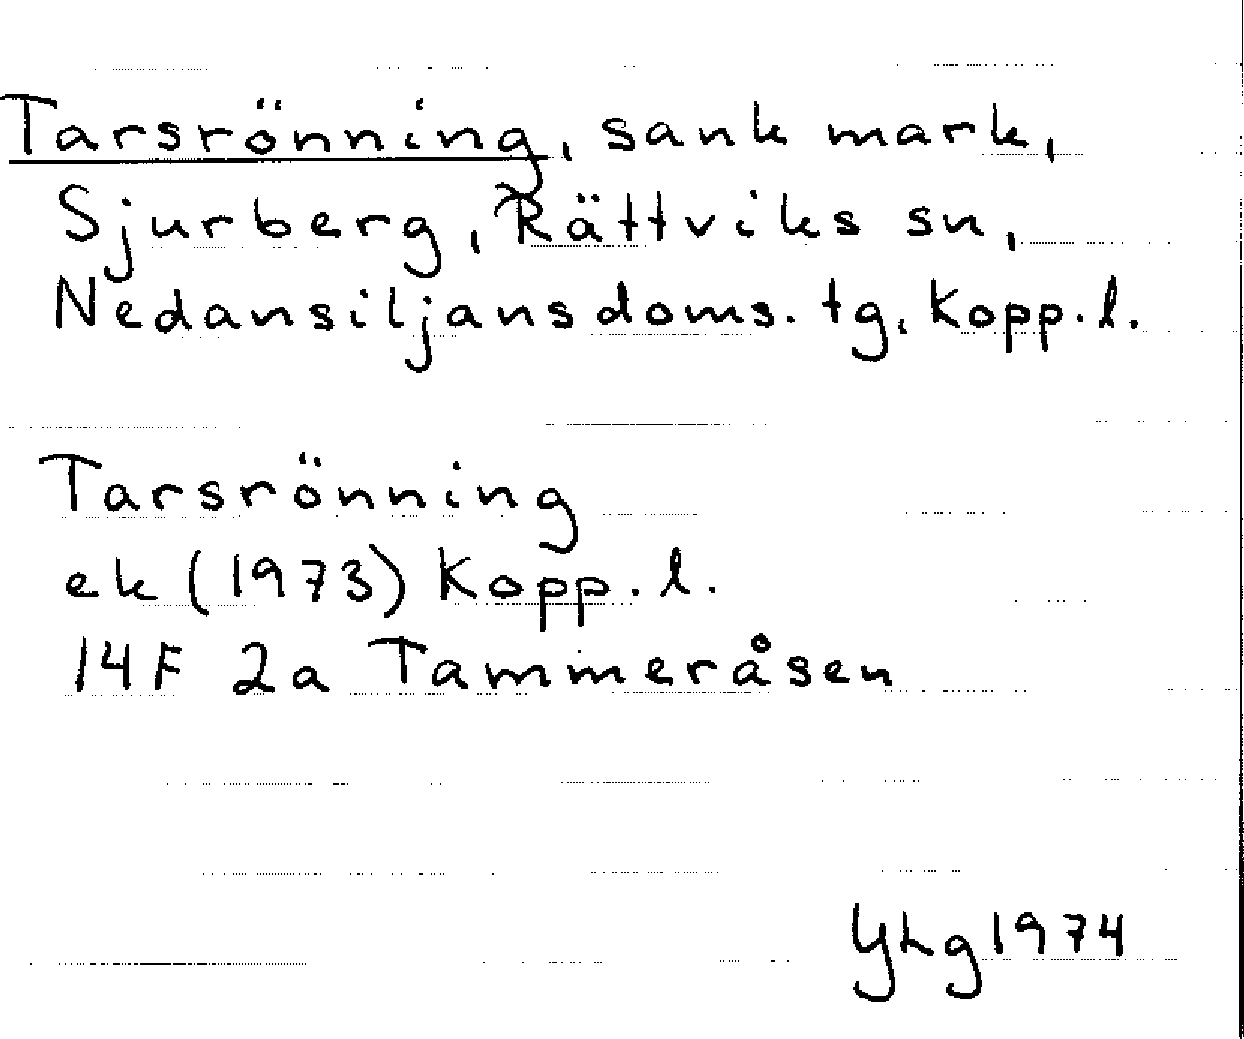 Tarsrönning, sank mark,
Sjurberg, Rättviks sn,
Nedansiljans doms. tg, Kopp. l.
Tarsrönning
ek (1973) Kopp. l.
14F 2a Tammeråsen
Yhg 1974